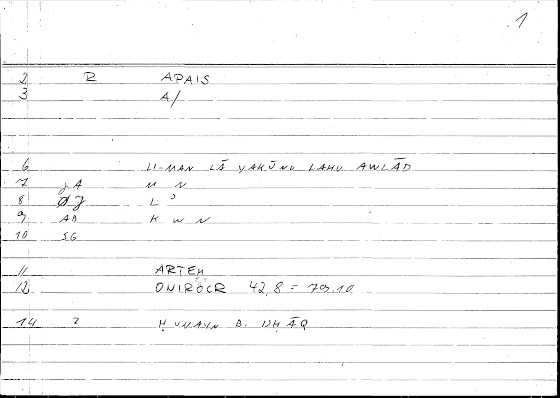 1
2 R APAIS
3 A/
6 LI-MAN LĀ YAKŪNU LAHU AWLĀD
7 JA M N
8 ØJ L ʾ
9 AB K W N
10 SG
11 ARTEM
12 ONIROCR 42,8 = 79.10
14 2 ḤUNAYN B. ISḤĀQ